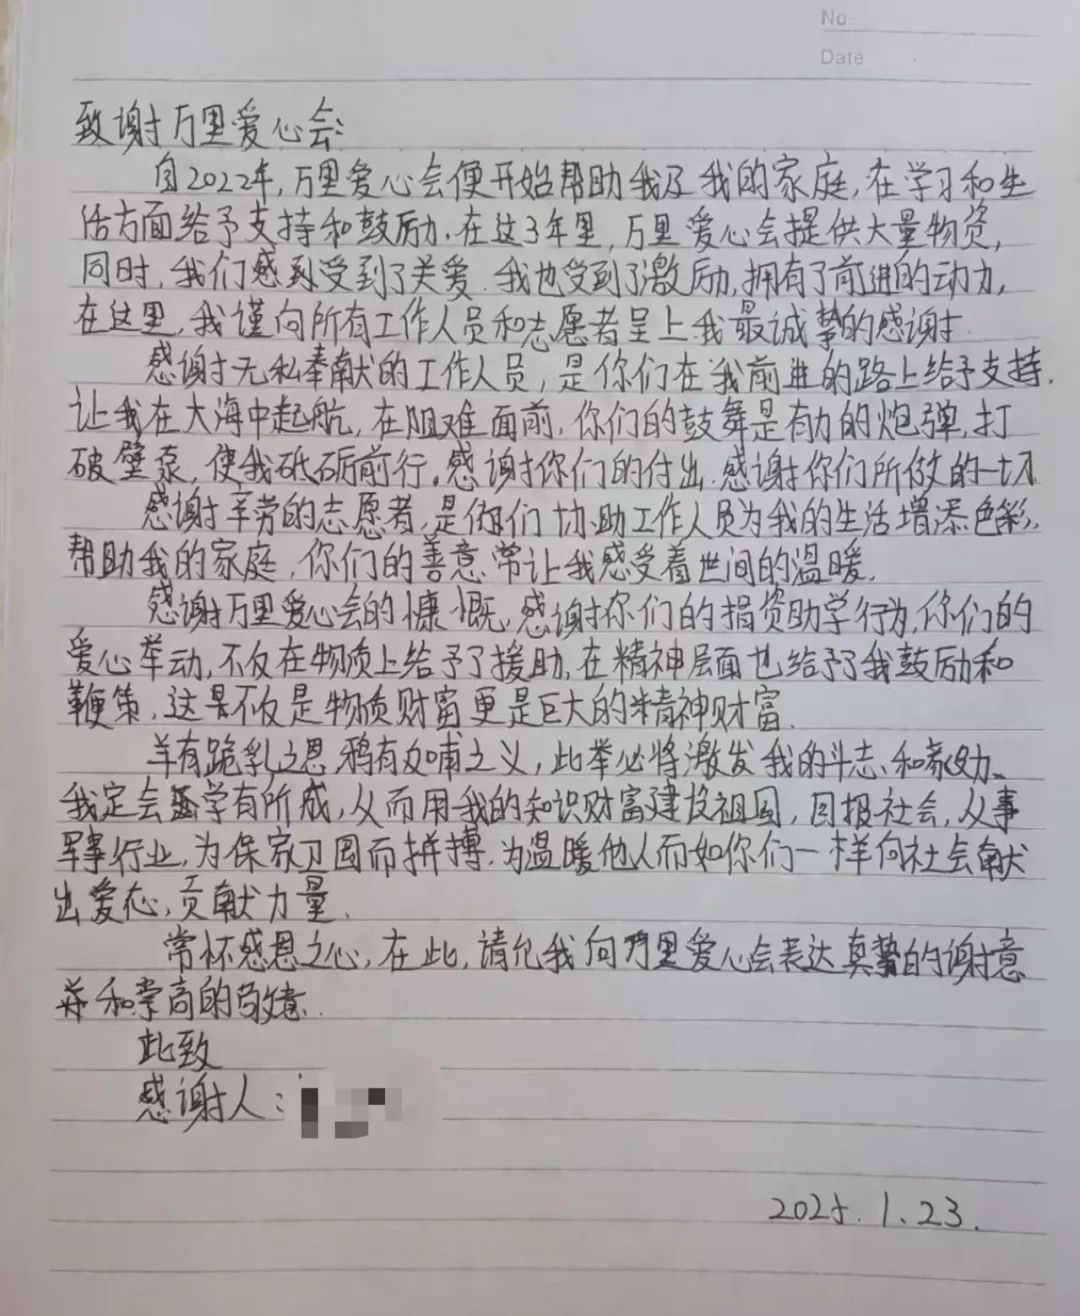 No.
Date
致谢万里爱心会:
自2022年,万里爱心会便开始帮助我及我的家庭,在学习和生
活方面给予支持和鼓励.在这3年里,万里爱心会提供大量物资,
同时,我们感到受到了关爱.我也受到了激励,拥有了前进的动力,
在这里,我谨向所有工作人员和志愿者呈上我最诚挚的感谢.
感谢无私奉献的工作人员,是你们在我前进的路上给予支持.
让我在大海中起航,在阻难面前,你们的鼓舞是有力的炮弹,打
破壁泵,使我砥砺前行。感谢你们的付出.感谢你们所做的一切
感谢辛劳的志愿者,是你们协助工作人员为我的生活增添色彩,
帮助我的家庭,你们的善意常让我感受着世间的温暖.
感谢万里爱心会的慷慨,感谢你们的捐资助学行为,你们的
爱心举动,不仅在物质上给予了援助,在精神层面也给予了我鼓励和
鞭策,这是不仅是物质财富更是巨大的精神财富.
羊有跪乳之恩,鸦有反哺之义,此举必将激发我的斗志、和
我定会学有所成,从而用我的知识财富建设祖国,回报社会,从事
军事行业,为保家卫国而拼搏.为温暖他人而如你们一样向社会献
出爱心,贡献力量.
常怀感恩之心,在此,请允我向万里爱心会表达真挚的谢意
并和崇高的敬意.
此致
感谢人:
2025.1.23.